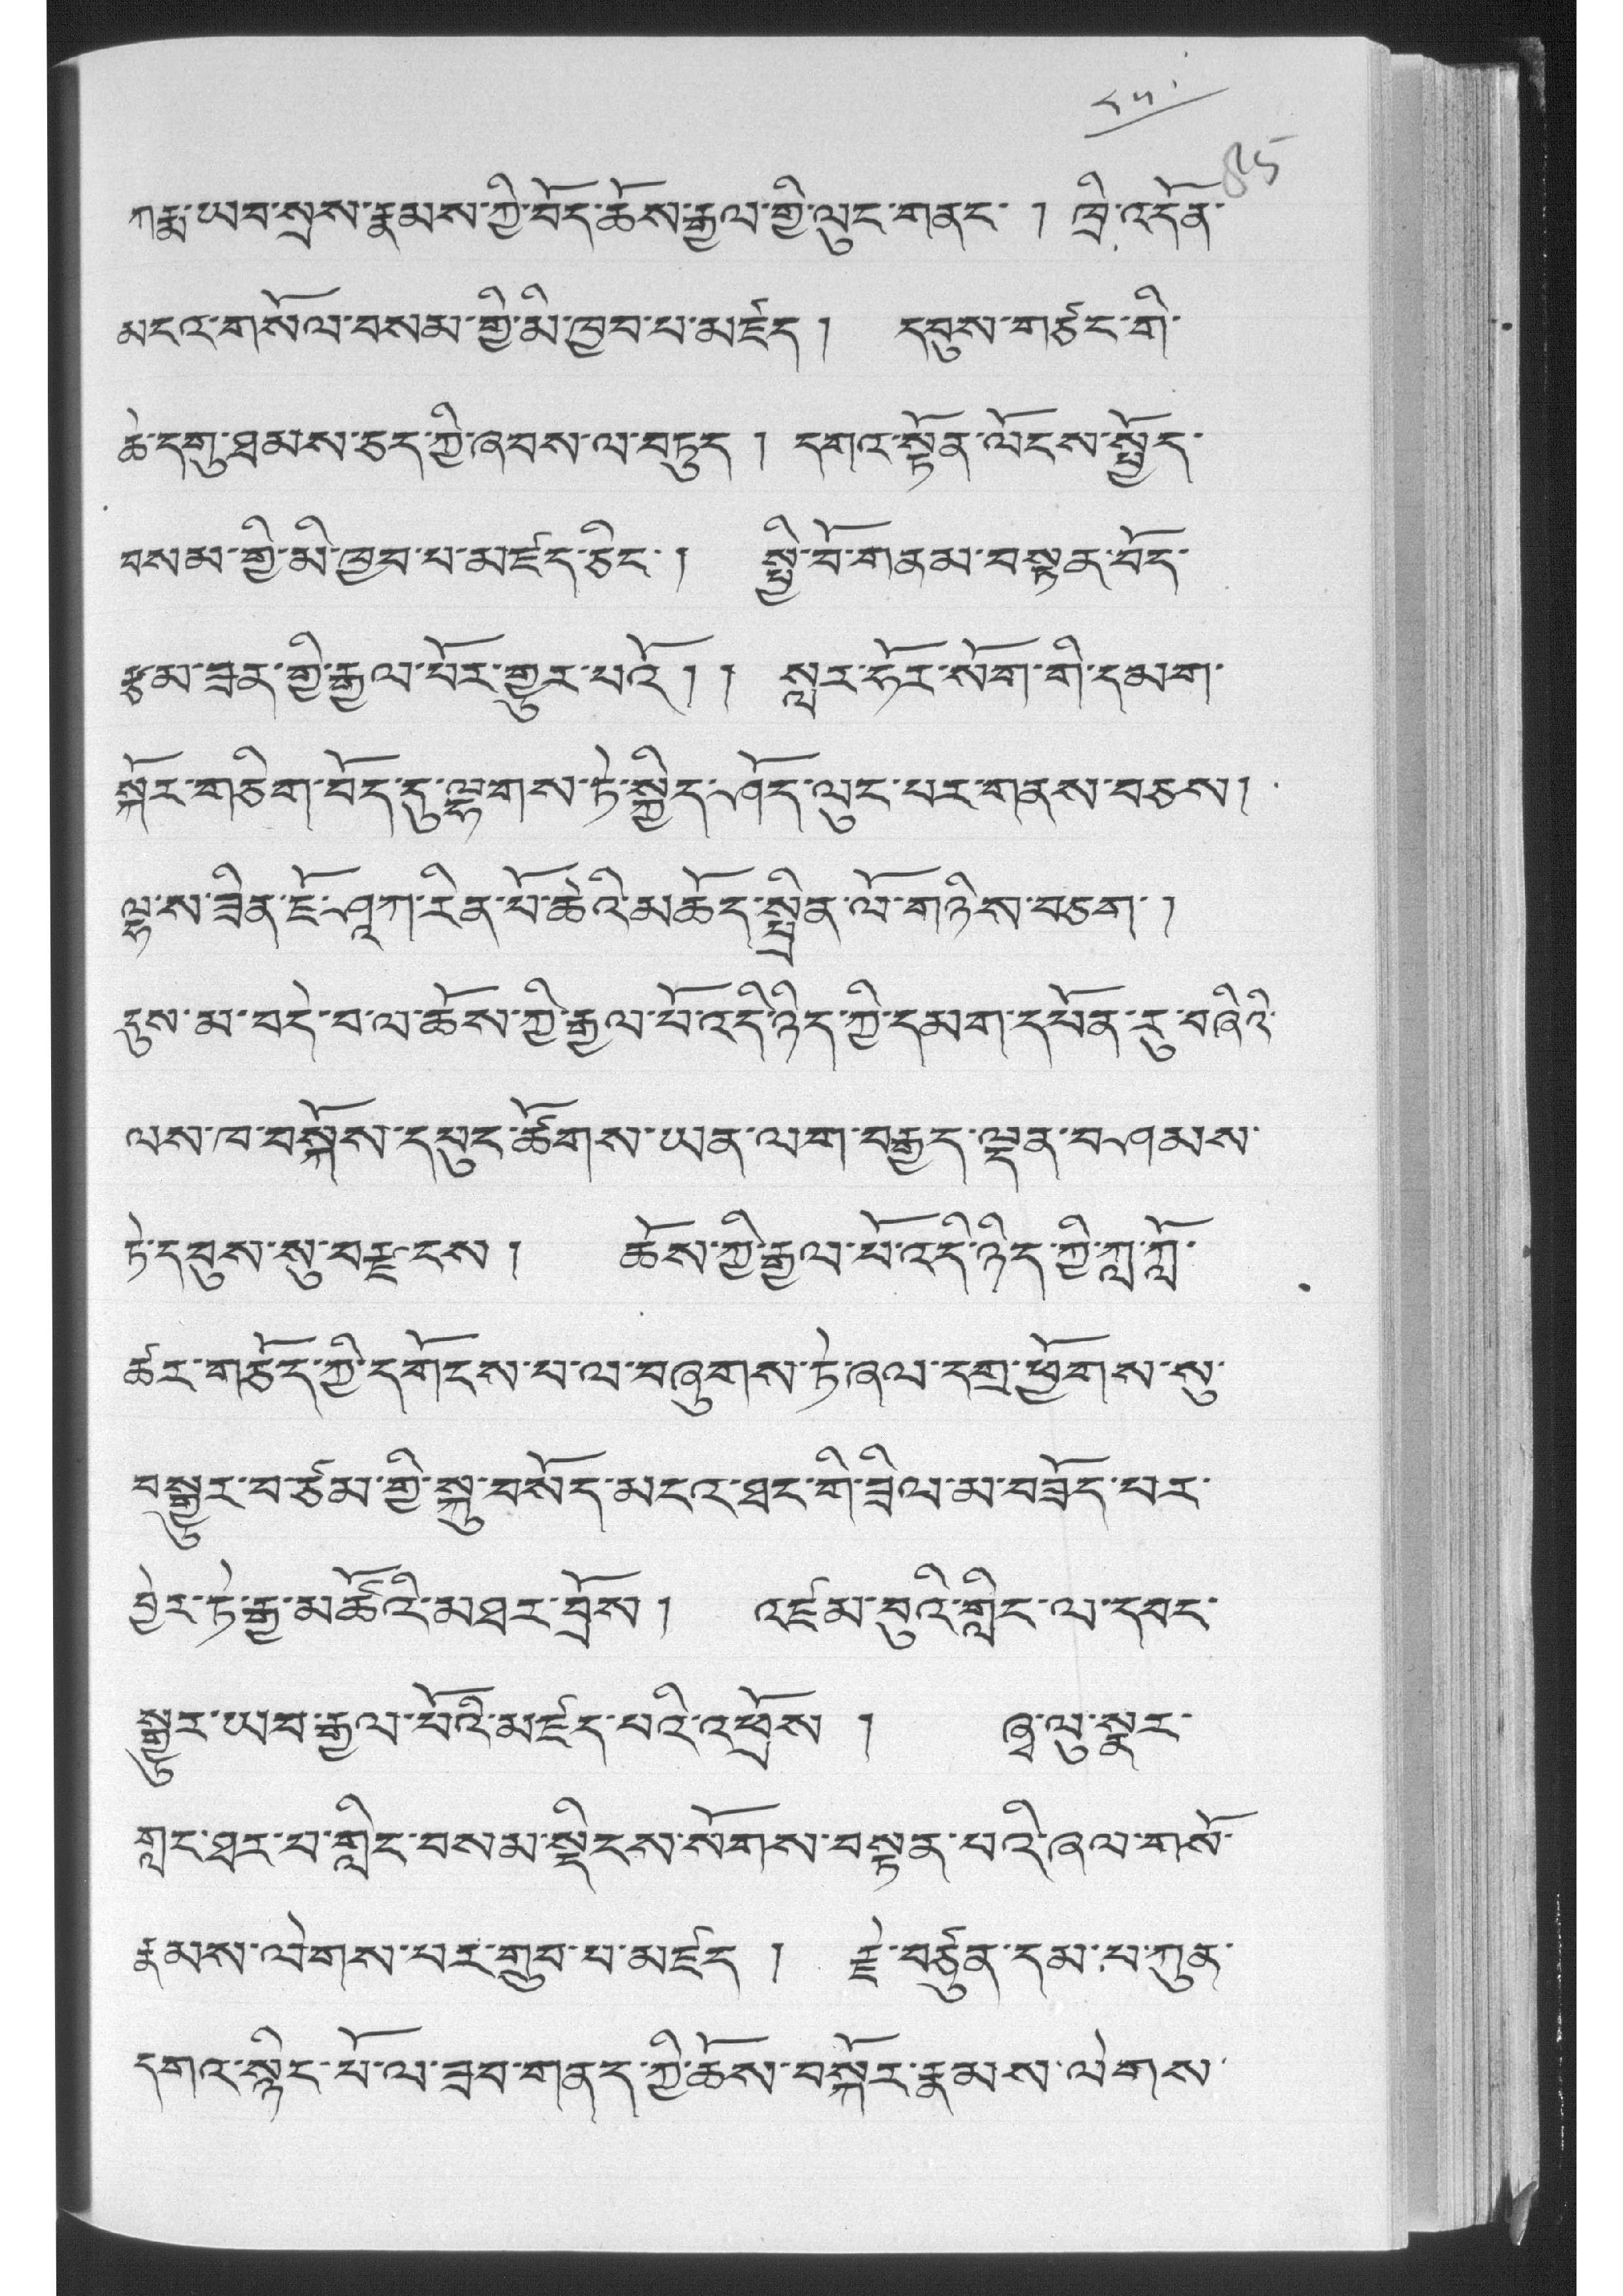 ༨༥
85
ཀརྨ་ཡབ་སྲས་རྣམས་ཀྱི་བོད་ཆོས་རྒྱལ་གྱི་ལུང་གནང་ ། ཁྲི་འདོན་
མངའ་གསོལ་བསམ་གྱི་མི་ཁྱབ་པ་མཛད ། དབུས་གཙང་གི་
ཆེ་དགུ་ཐམས་ཅད་ཀྱི་ཞབས་ལ་བཏུད ། དགའ་སྟོན་ལོངས་སྤྱོད་
བསམ་གྱི་མི་ཁྱབ་པ་མཛད་ཅིང་ ། སྤྱི་བོ་གནམ་བསྟན་བོད་
རྩམ་ཟན་གྱི་རྒྱལ་པོར་གྱུར་པའོ ། ། སླར་ཧོར་སོག་གི་དམག་
སྐོར་གཅིག་བོད་དུ་ལྷགས་ཏེ་སྐྱིད་ཤོད་ལུང་པར་གནས་བཅས །
ལྷ་ས་ཟིན་ཇོ་ཤཱཀ་རིན་པོ་ཆེའི་མཆོད་སྤྲིན་ལོ་གཉིས་བཅག་ །
དུས་མ་བདེ་བ་ལ་ཆོས་ཀྱི་རྒྱལ་པོ་འདི་ཉིད་ཀྱི་དམག་དཔོན་རུ་བཞིའི་
ལས་ཁ་བསྐོས་དཔུང་ཚོགས་ཡན་ལག་བརྒྱད་ལྡན་བཤམས་
ཏེ་དབུས་སུ་བརྫངས ། ཆོས་ཀྱི་རྒྱལ་པོ་འདི་ཉིད་ཀྱི་ཀླ་ཀློ་
ཚར་གཅོད་ཀྱི་དགོངས་པ་ལ་བཞུགས་ཏེ་ཞལ་དགྲ་ཕྱོགས་སུ་
བསྒྱུར་བ་ཙམ་གྱི་སྐུ་བསོད་མངའ་ཐང་གི་ཟིལ་མ་བཟོད་པར་
བྱེར་ཏེ་རྒྱ་མཚོའི་མཐར་བྲོས ། འཛམ་བུའི་གླིང་ལ་དབང་
སྒྱུར་ཡབ་རྒྱལ་པོའི་མཛད་པའི་འཕྲོས ། ཞྭ་ལུ་སྣར་
གླང་ཐར་པ་གླིང་བསམ་སྡིངས་སོགས་བསྟན་པའི་ཞལ་གསོ་
རྣམས་ལེགས་པར་གྲུབ་པ་མཛད ། རྗེ་བཙུན་དམ་པ་ཀུན་
དགའ་སྙིང་པོ་ལ་ཟབ་གནད་ཀྱི་ཆོས་བསྐོར་རྣམས་ལེགས་